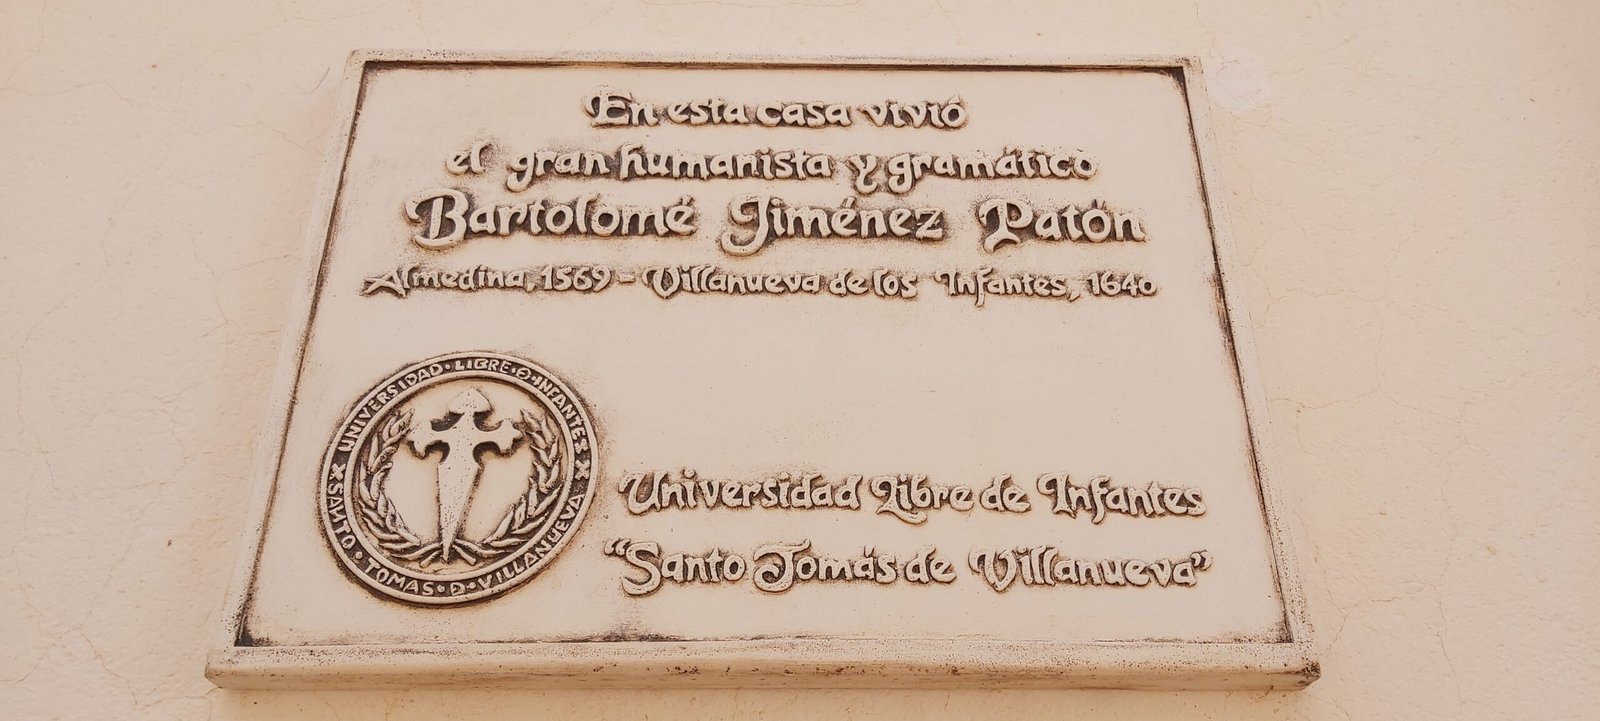 En esta casa vivió
el gran humanista y gramático
Bartolomé Jiménez Patón
Almedina, 1569 - Villanueva de los Infantes, 1640
UNIVERSIDAD · LIBRE · D · INFANTES
SANTO · TOMAS · D · VILLANUEVA
Universidad Libre de Infantes
“Santo Tomás de Villanueva”